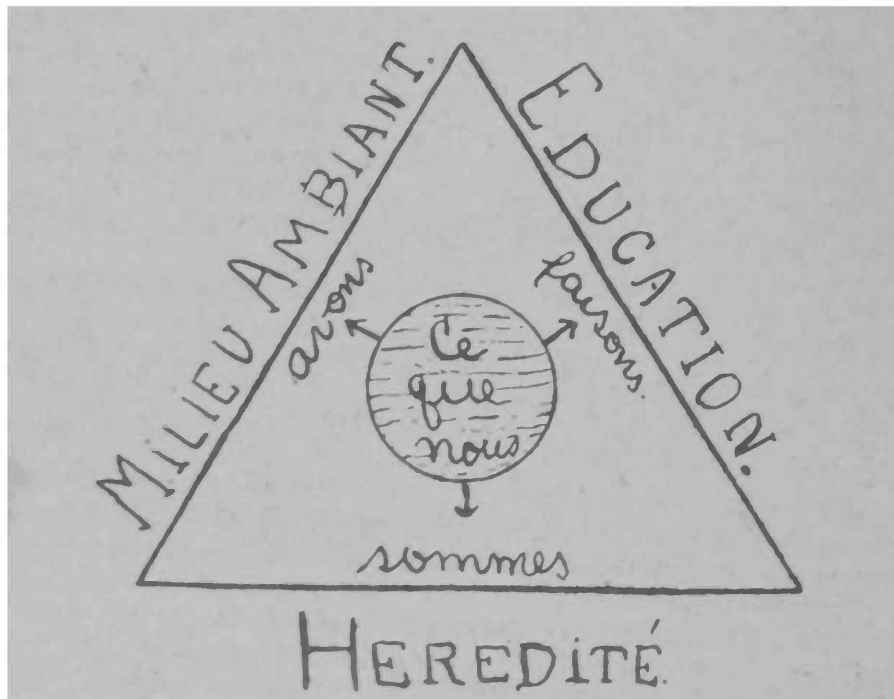 MILIEU AMBIANT.
EDUCATION.
avons
faisons.
Ce
que
nous
sommes
HEREDITÉ.